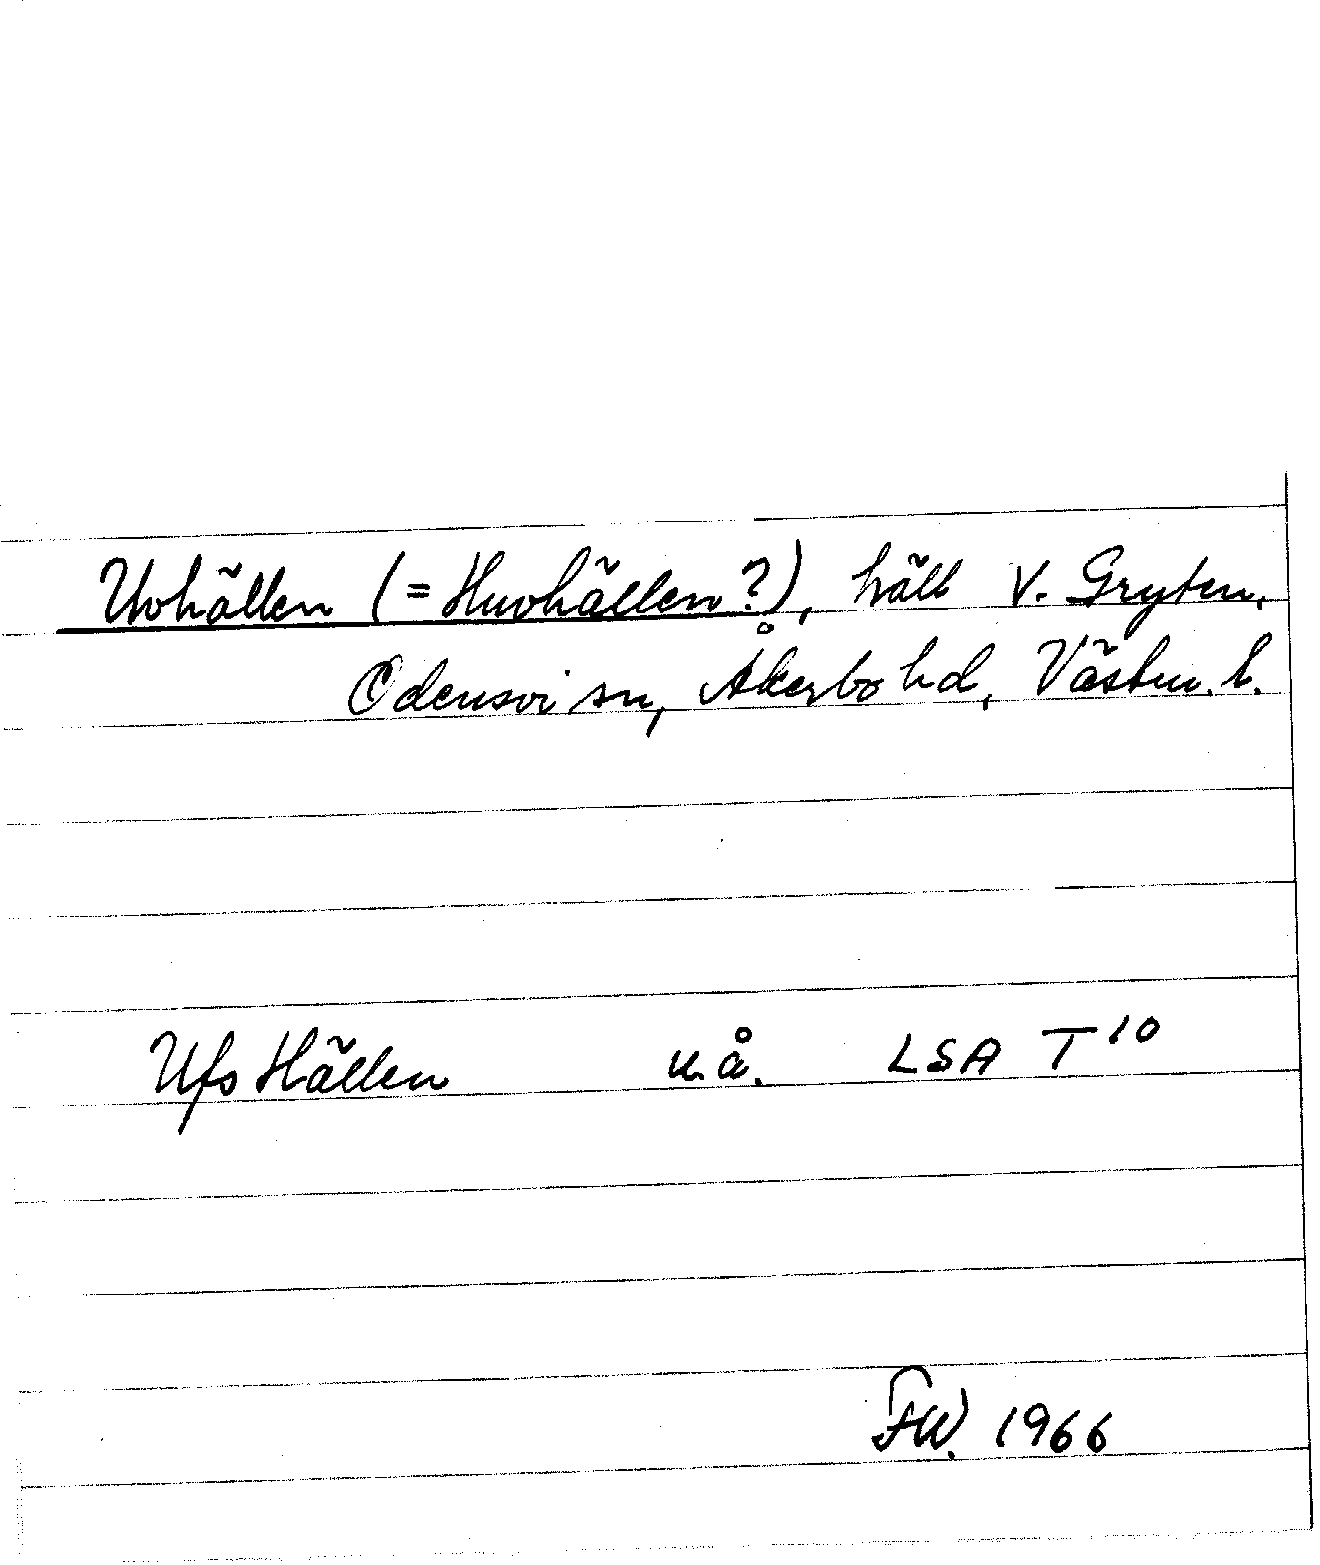 Uvhällen (= Huvhällen?), häll v. Gryten,
Odensvi sn, Åkerbo hd, Västm. l.
Ufs Hällen u.å. LSA T 10
FW. 1966